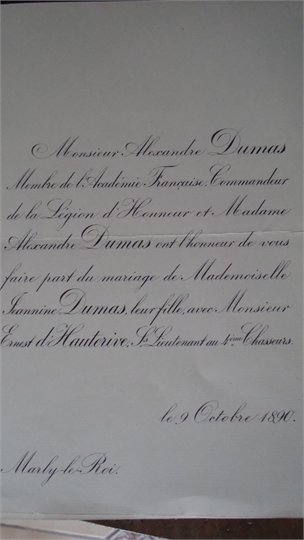 Monsieur Alexandre Dumas
Membre de l'Académie Française, Commandeur
de la Légion d'Honneur et Madame
Alexandre Dumas ont l'honneur de vous
faire part du mariage de Mademoiselle
Jeannine Dumas, leur fille, avec Monsieur
Ernest d'Hauterive, Ss Lieutenant au 4ème Chasseurs.
le 9 Octobre 1890.
Marly-le-Roi.